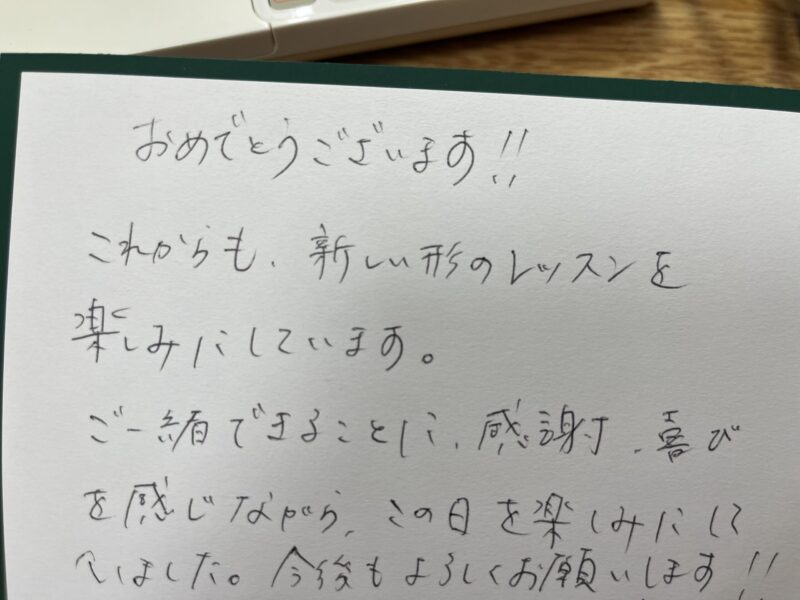 おめでとうございます!!
これからも、新しい形のレッスンを
楽しみにしています。
ご一緒できることに、感謝、喜び
を感じながら、この日を楽しみにして
いました。今後もよろしくお願いします!!